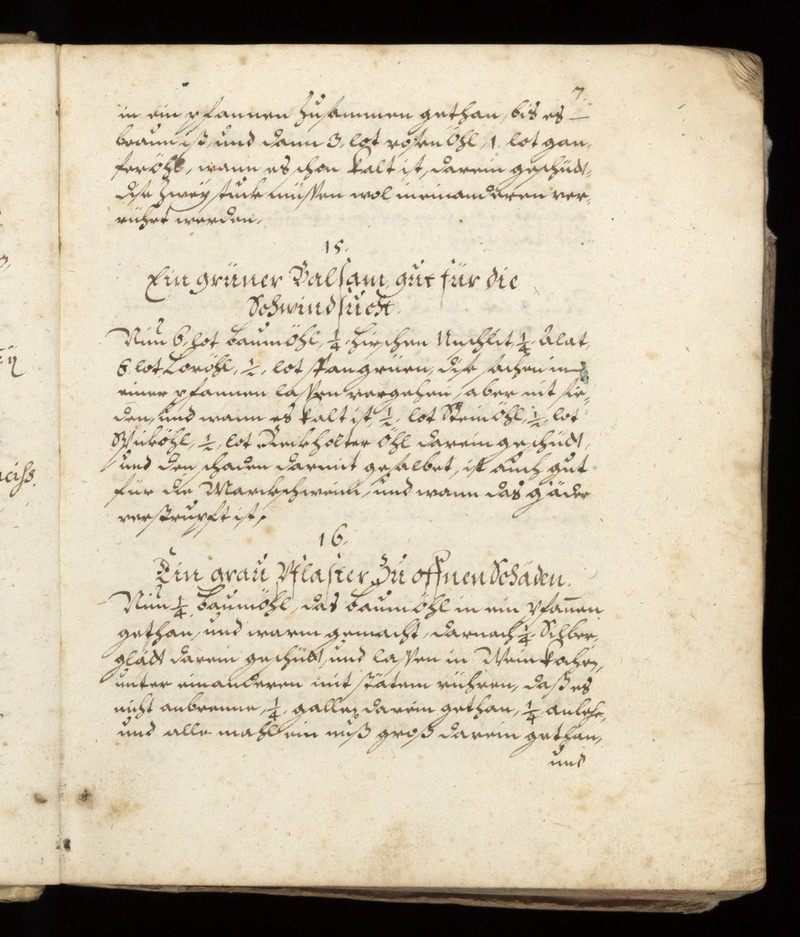 7.
in ein pfannen zusammen gethan, bis es
braun ist, und dann 3. lot rosenöhl, 1. lot gan,
feröhl, wann es schon kalt ist, darein geschüdt,
dise zwey stuck müssen wol in einanderen ver,
rührt werden.
15.
Ein grüner Balsam, gut für die
Schwindsucht.
Nim 6. lot baumöhl, 1/4. hirschen Unschlit, 1/4. Alat,
6 lot Loröhl, 1/2. lot span grüen, dise sachen in
einer pfannen lassen vergehen, aber nit sie,
den, und wann es kalt ist, 1/2. lot Steinöhl, 1/2. lot
Spicköhl, 1/2. lot Reckholter öhl darein geschüdt,
und den schaden darmit gesalbet, ist auch gut
für die Marckschweini, und wann das gäder
verstrupft ist.
16.
Ein grau Pflaster zu offnen Schäden.
Nim 1/4. baumöhl, das baumöhl in ein Pfannen
gethan, und warm gemacht, darnach 1/4. Silber,
glädt darein geschüdt, und lassen in
unter einanderen mit stätem rühren, daß es
nicht anbrenne, 1/4. darein gethan, 1/4.
und alle mahl ein nuß groß darein gethan,
und